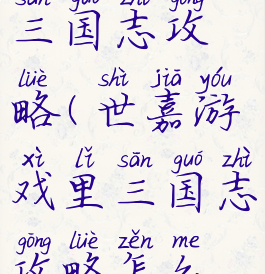 sān guó zhì gōng
三国志攻
lüè shì jiā yóu
略(世嘉游
xì lǐ sān guó zhì
戏里三国志
gōng lüè zěn me
攻略怎么